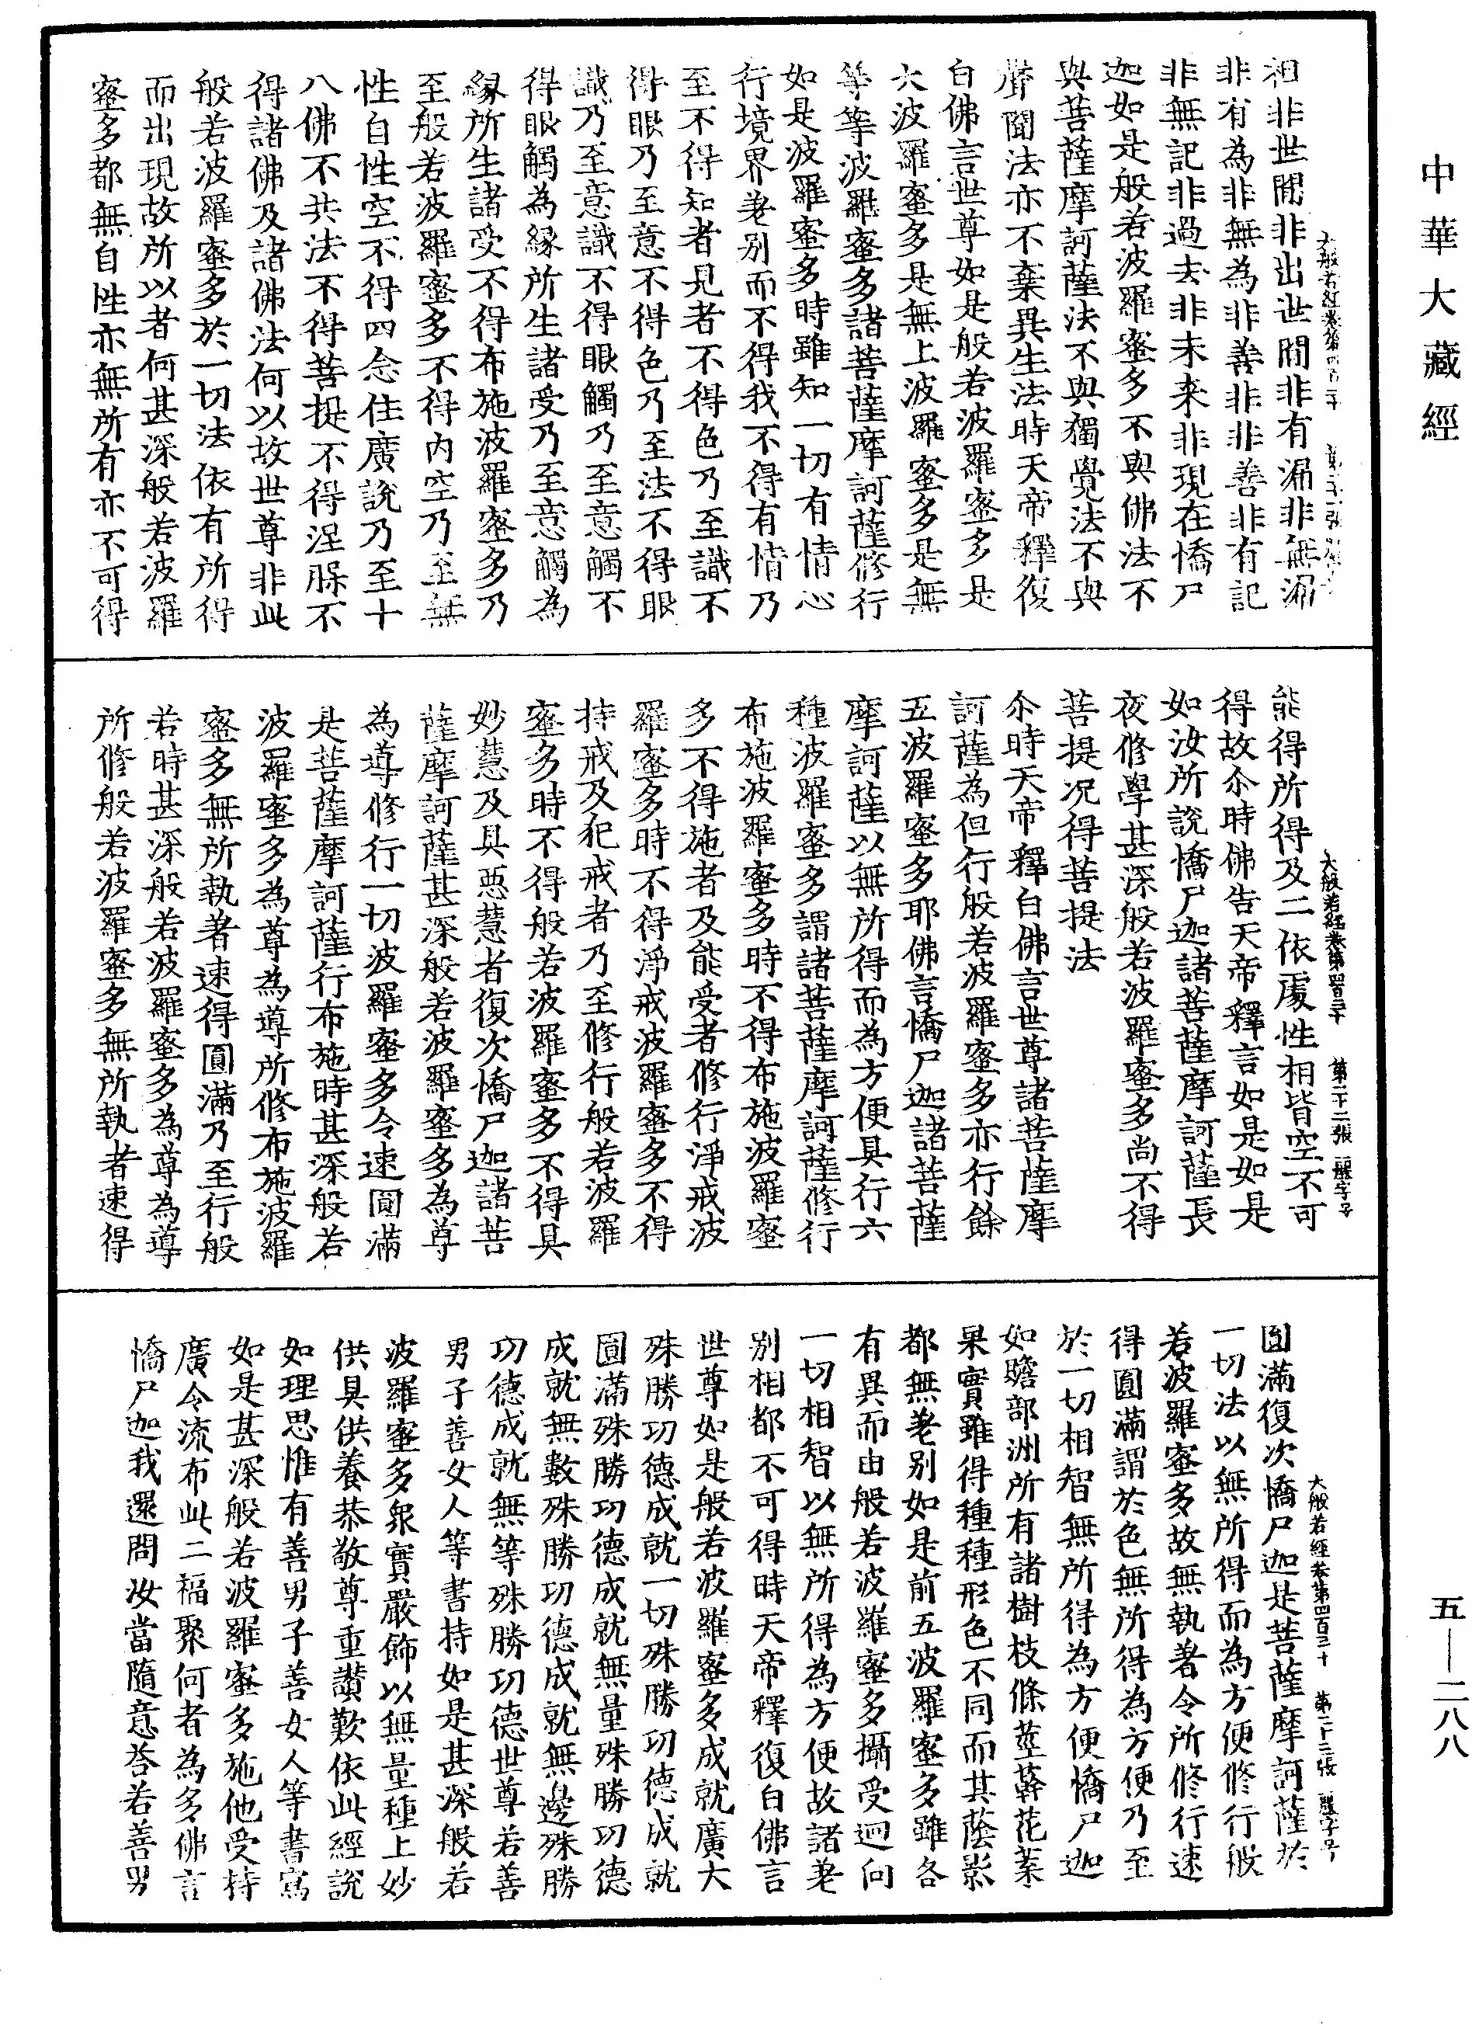 中華大藏經
相非世間非出世間非有漏非無漏
非有為非無為非善非非善非有記
非無記非過去非未来非現在憍尸
迦如是般若波羅蜜多不與佛法不
與菩薩摩訶薩法不與獨覺法不與
聲聞法亦不棄異生法時天帝釋復
白佛言世尊如是般若波羅蜜多是
大波羅蜜多是無上波羅蜜多是無
等等波羅蜜多諸菩薩摩訶薩修行
如是波羅蜜多時雖知一切有情心
行境界差別而不得我不得有情乃
至不得知者見者不得色乃至識不
得眼乃至意不得色乃至法不得眼
識乃至意識不得眼觸乃至意觸不
得眼觸為緣所生諸受乃至意觸為
緣所生諸受不得布施波羅蜜多乃
至般若波羅蜜多不得內空乃至無
性自性空不得四念住廣說乃至十
八佛不共法不得菩提不得涅槃不
得諸佛及諸佛法何以故世尊非此
般若波羅蜜多於一切法依有所得
而出現故所以者何甚深般若波羅
蜜多都無自性亦無所有亦不可得
大般若經卷第四百三十 第二十二張 
能得所得及二依處性相皆空不可
得故尒時佛告天帝釋言如是如是
如汝所說憍尸迦諸菩薩摩訶薩長
夜修學甚深般若波羅蜜多尚不得
菩提况得菩提法
尒時天帝釋白佛言世尊諸菩薩摩
訶薩為但行般若波羅蜜多亦行餘
五波羅蜜多耶佛言憍尸迦諸菩薩
摩訶薩以無所得而為方便具行六
種波羅蜜多謂諸菩薩摩訶薩修行
布施波羅蜜多時不得布施波羅蜜
多不得施者及能受者修行淨戒波
羅蜜多時不得淨戒波羅蜜多不得
持戒及犯戒者乃至修行般若波羅
蜜多時不得般若波羅蜜多不得具
妙慧及具惡慧者復次憍尸迦諸菩
薩摩訶薩甚深般若波羅蜜多為尊
為導修行一切波羅蜜多令速圓滿
是菩薩摩訶薩行布施時甚深般若
波羅蜜多為尊為導所修布施波羅
蜜多無所執著速得圓滿乃至行般
若時甚深般若波羅蜜多為尊為導
所修般若波羅蜜多無所執者速得
大般若經卷第四百三十 第二十三張
圓滿復次憍尸迦是菩薩摩訶薩於
一切法以無所得而為方便修行般
若波羅蜜多故無執著令所修行速
得圓滿謂於色無所得為方便乃至
於一切相智無所得為方便憍尸迦
如贍部洲所有諸樹枝條莖蘀花葉
果實雖得種種形色不同而其蔭影
都無差別如是前五波羅蜜多雖各
有異而由般若波羅蜜多攝受迴向
一切相智以無所得為方便故諸差
別相都不可得時天帝釋復白佛言
世尊如是般若波羅蜜多成就廣大
殊勝功德成就一切殊勝功德成就
圓滿殊勝功德成就無量殊勝功德
成就無數殊勝功德成就無邊殊勝
功德成就無等殊勝功德世尊若善
男子善女人等書持如是甚深般若
波羅蜜多衆寶嚴飾以無量種上妙
供具供養恭敬尊重讚歎依此經說
如理思惟有善男子善女人等書寫
如是甚深般若波羅蜜多施他受持
廣令流布此二福聚何者為多佛言
憍尸迦我還問汝當隨意荅若善男
五—二八八